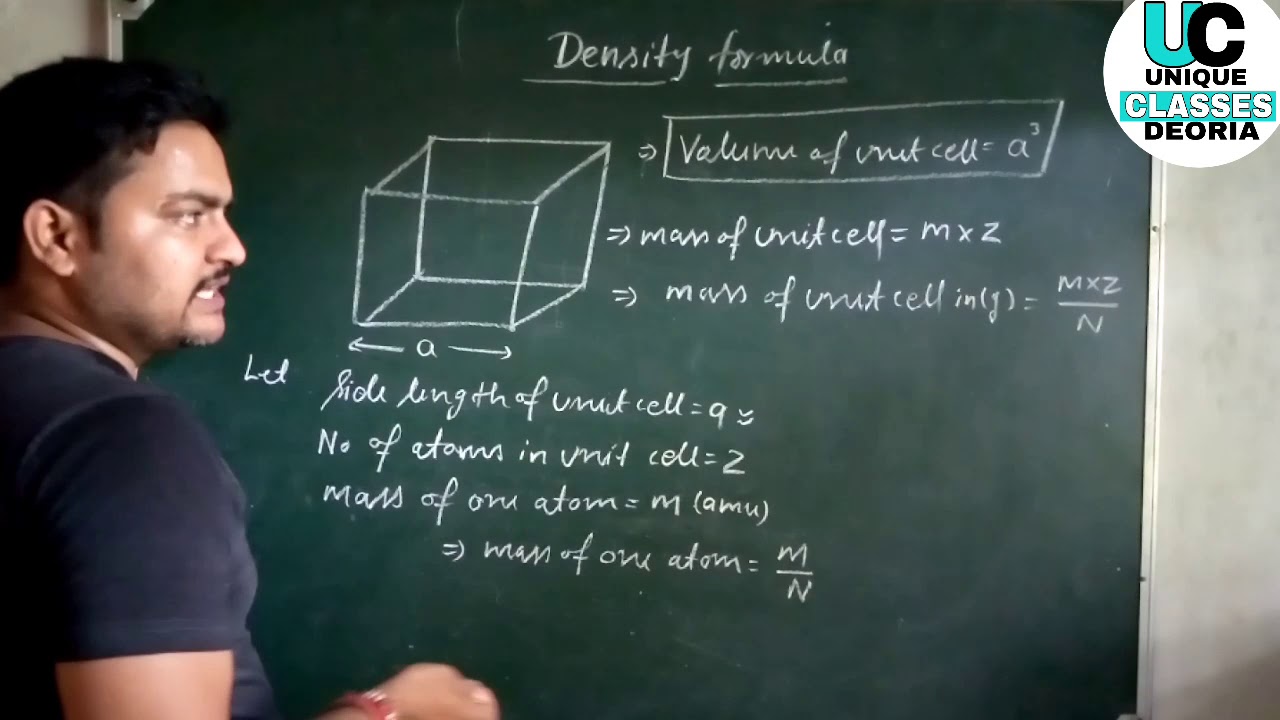 Density formula
UC
UNIQUE
CLASSES
DEORIA
⇒ Volume of unit cell = a³
⇒ mass of unit cell = m × Z
⇒ mass of unit cell in(g) = M×Z/N
a
Let
Side length of unit cell = a
No of atoms in unit cell = Z
mass of one atom = M (amu)
⇒ mass of one atom = M/N